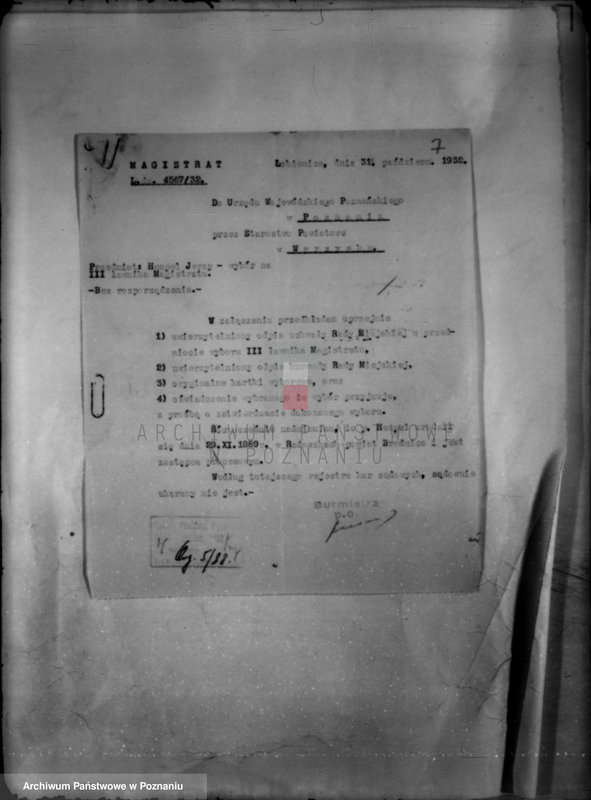 7
MAGISTRAT Łobżenica, dnia 31. październ. 1932.
L.dz. 4567/32.
Do Urzędu Wojewódzkiego Poznańskiego
w Poznaniu
przez Starostwo Powiatowe
w Wyrzysku.
Przedmiot: Hempel Jerzy - wybór na
III ławnika Magistratu.
-Bez rozporządzenia.-
W załączeniu przedkładam uprzejmie
1) uwierzytelniony odpis uchwały Rady Miejskiej w przed-
miocie wyboru III ławnika Magistratu,
2) uwierzytelniony odpis kurendy Rady Miejskiej,
3) oryginalne kartki wyborcze, oraz
4) oświadczenie wybranego że wybór przyjmuje,
z prośbą o zatwierdzenie dokonanego wyboru.
Równocześnie nadmieniam, że p. Hempel urodził
się dnia 29.XI.1889 r. w powiat Brodnica i jest
zastępcą procesowym.
Według tutejszego rejestru kar sądowych, sądownie
ukarany nie jest.-
Burmistrz
p.o.
5/33.
ARCHIWUM PAŃSTWOWE
W POZNANIU
Archiwum Państwowe w Poznaniu